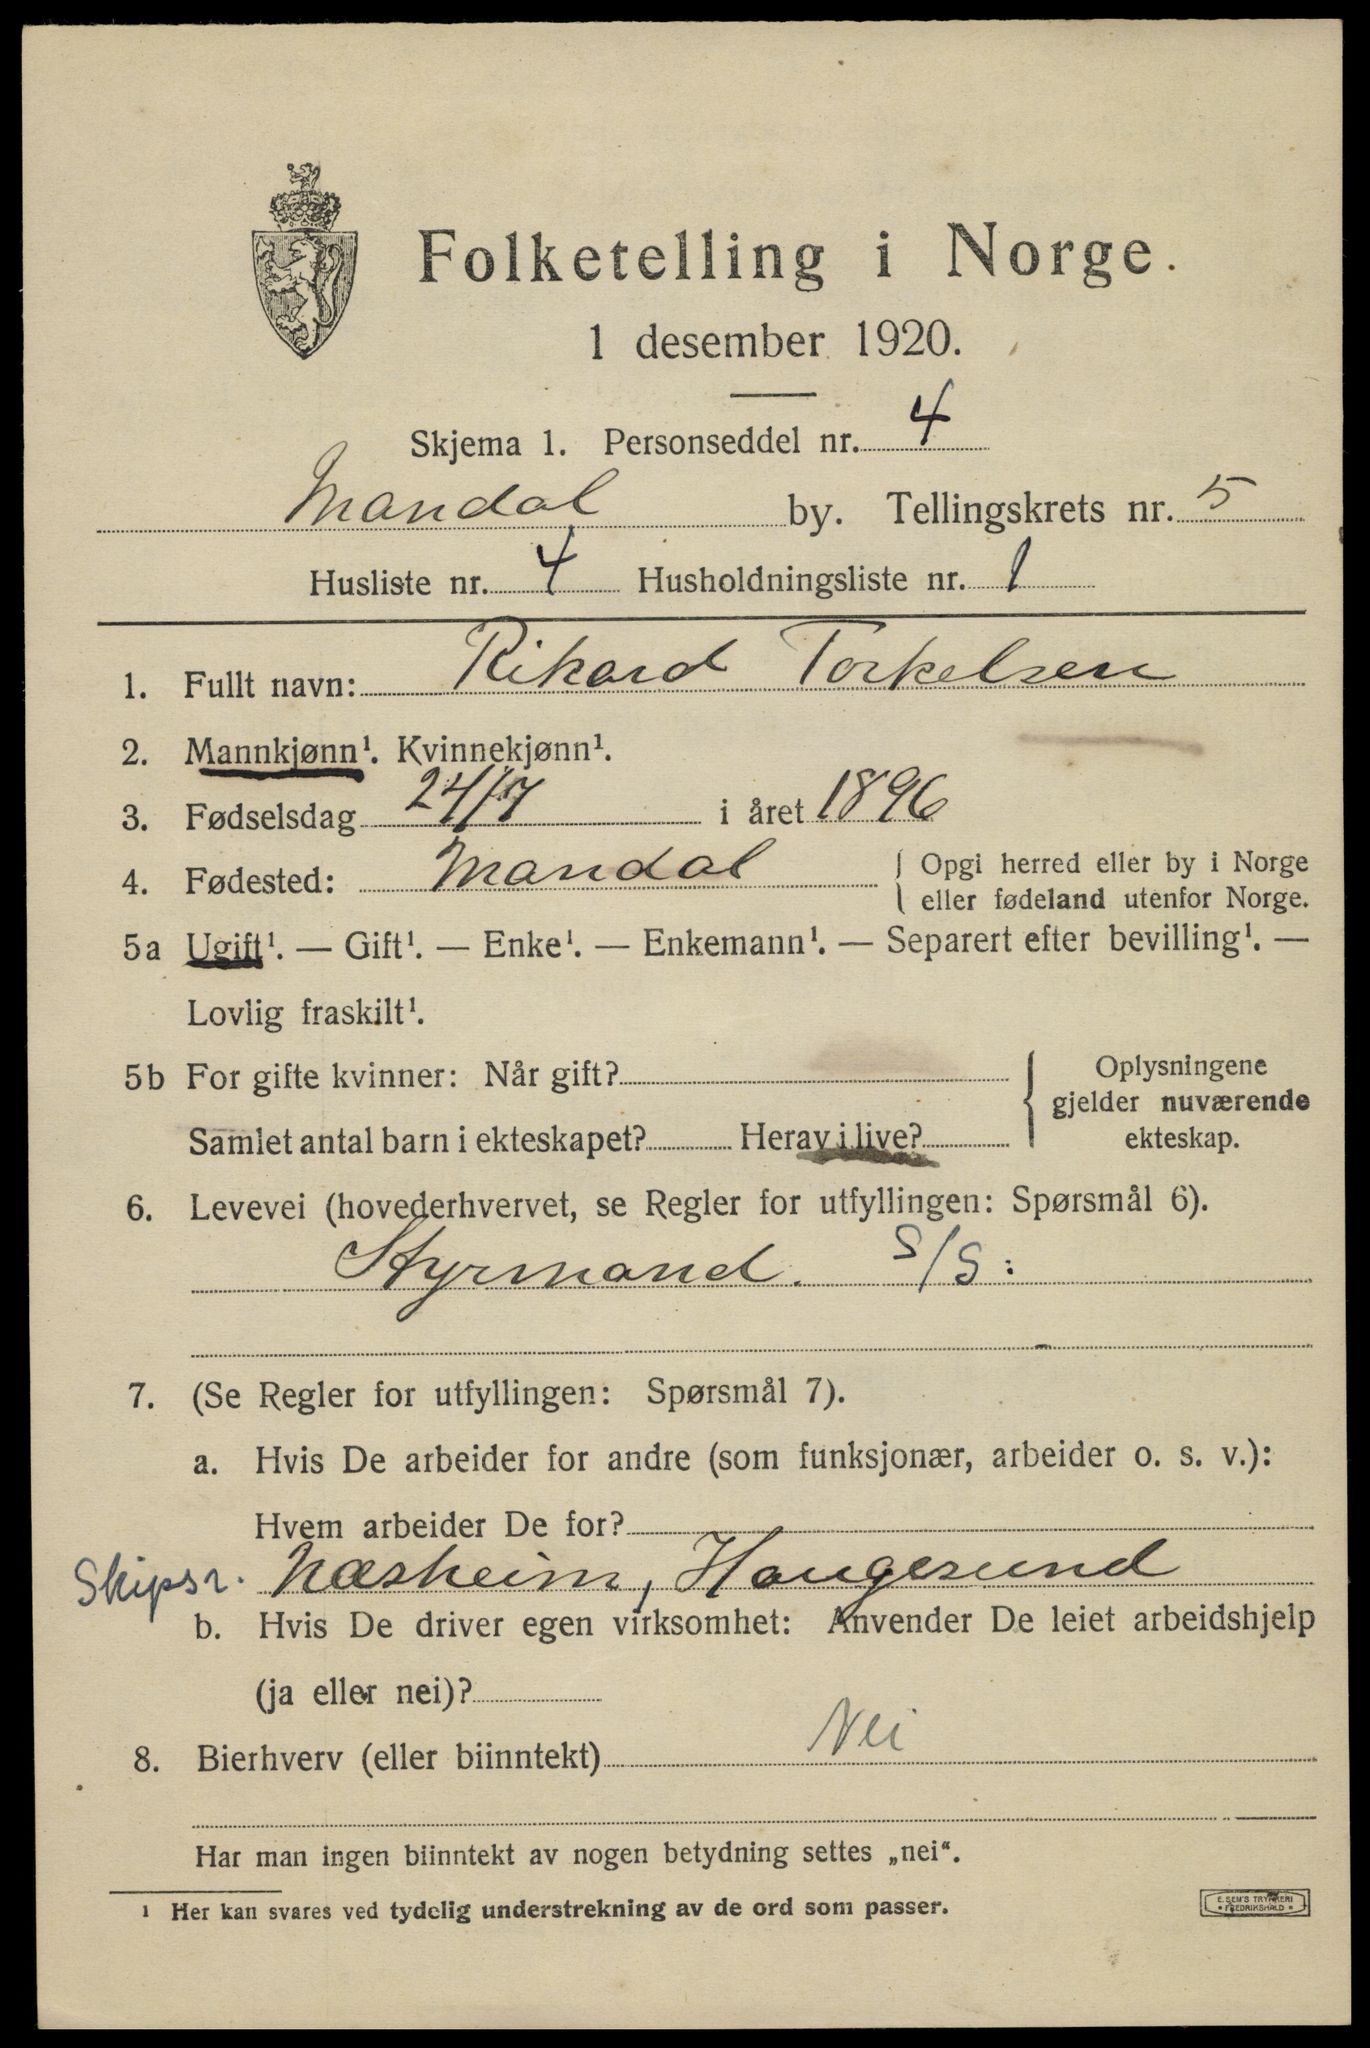 Folketelling i Norge.
1 desember 1920.
Skjema 1. Personseddel nr. 4
Mandal by. Tellingskrets nr. 5
Husliste nr. 4 Husholdningsliste nr. 1
1. Fullt navn: Rikard Torkelsen
2. Mannkjønn¹. Kvinnekjønn¹.
3. Fødselsdag 24/7 i året 1896
4. Fødested: Mandal { Opgi herred eller by i Norge
eller fødeland utenfor Norge.
5a Ugift¹. — Gift¹. — Enke¹. — Enkemann¹. — Separert efter bevilling¹. —
Lovlig fraskilt¹.
5b For gifte kvinner: Når gift?
Samlet antal barn i ekteskapet? Herav i live?
{ Oplysningene
gjelder nuværende
ekteskap.
6. Levevei (hovederhvervet, se Regler for utfyllingen: Spørsmål 6).
Styrmand. S/S:
7. (Se Regler for utfyllingen: Spørsmål 7).
a. Hvis De arbeider for andre (som funksjonær, arbeider o. s. v.):
Hvem arbeider De for?
Skipsr. Næsheim, Haugesund
b. Hvis De driver egen virksomhet: Anvender De leiet arbeidshjelp
(ja eller nei)?
8. Bierhverv (eller biinntekt) Nei
Har man ingen biinntekt av nogen betydning settes „nei“.
¹ Her kan svares ved tydelig understrekning av de ord som passer.
E. SEM'S TRYKKERI
* FREDRIKSHALD *